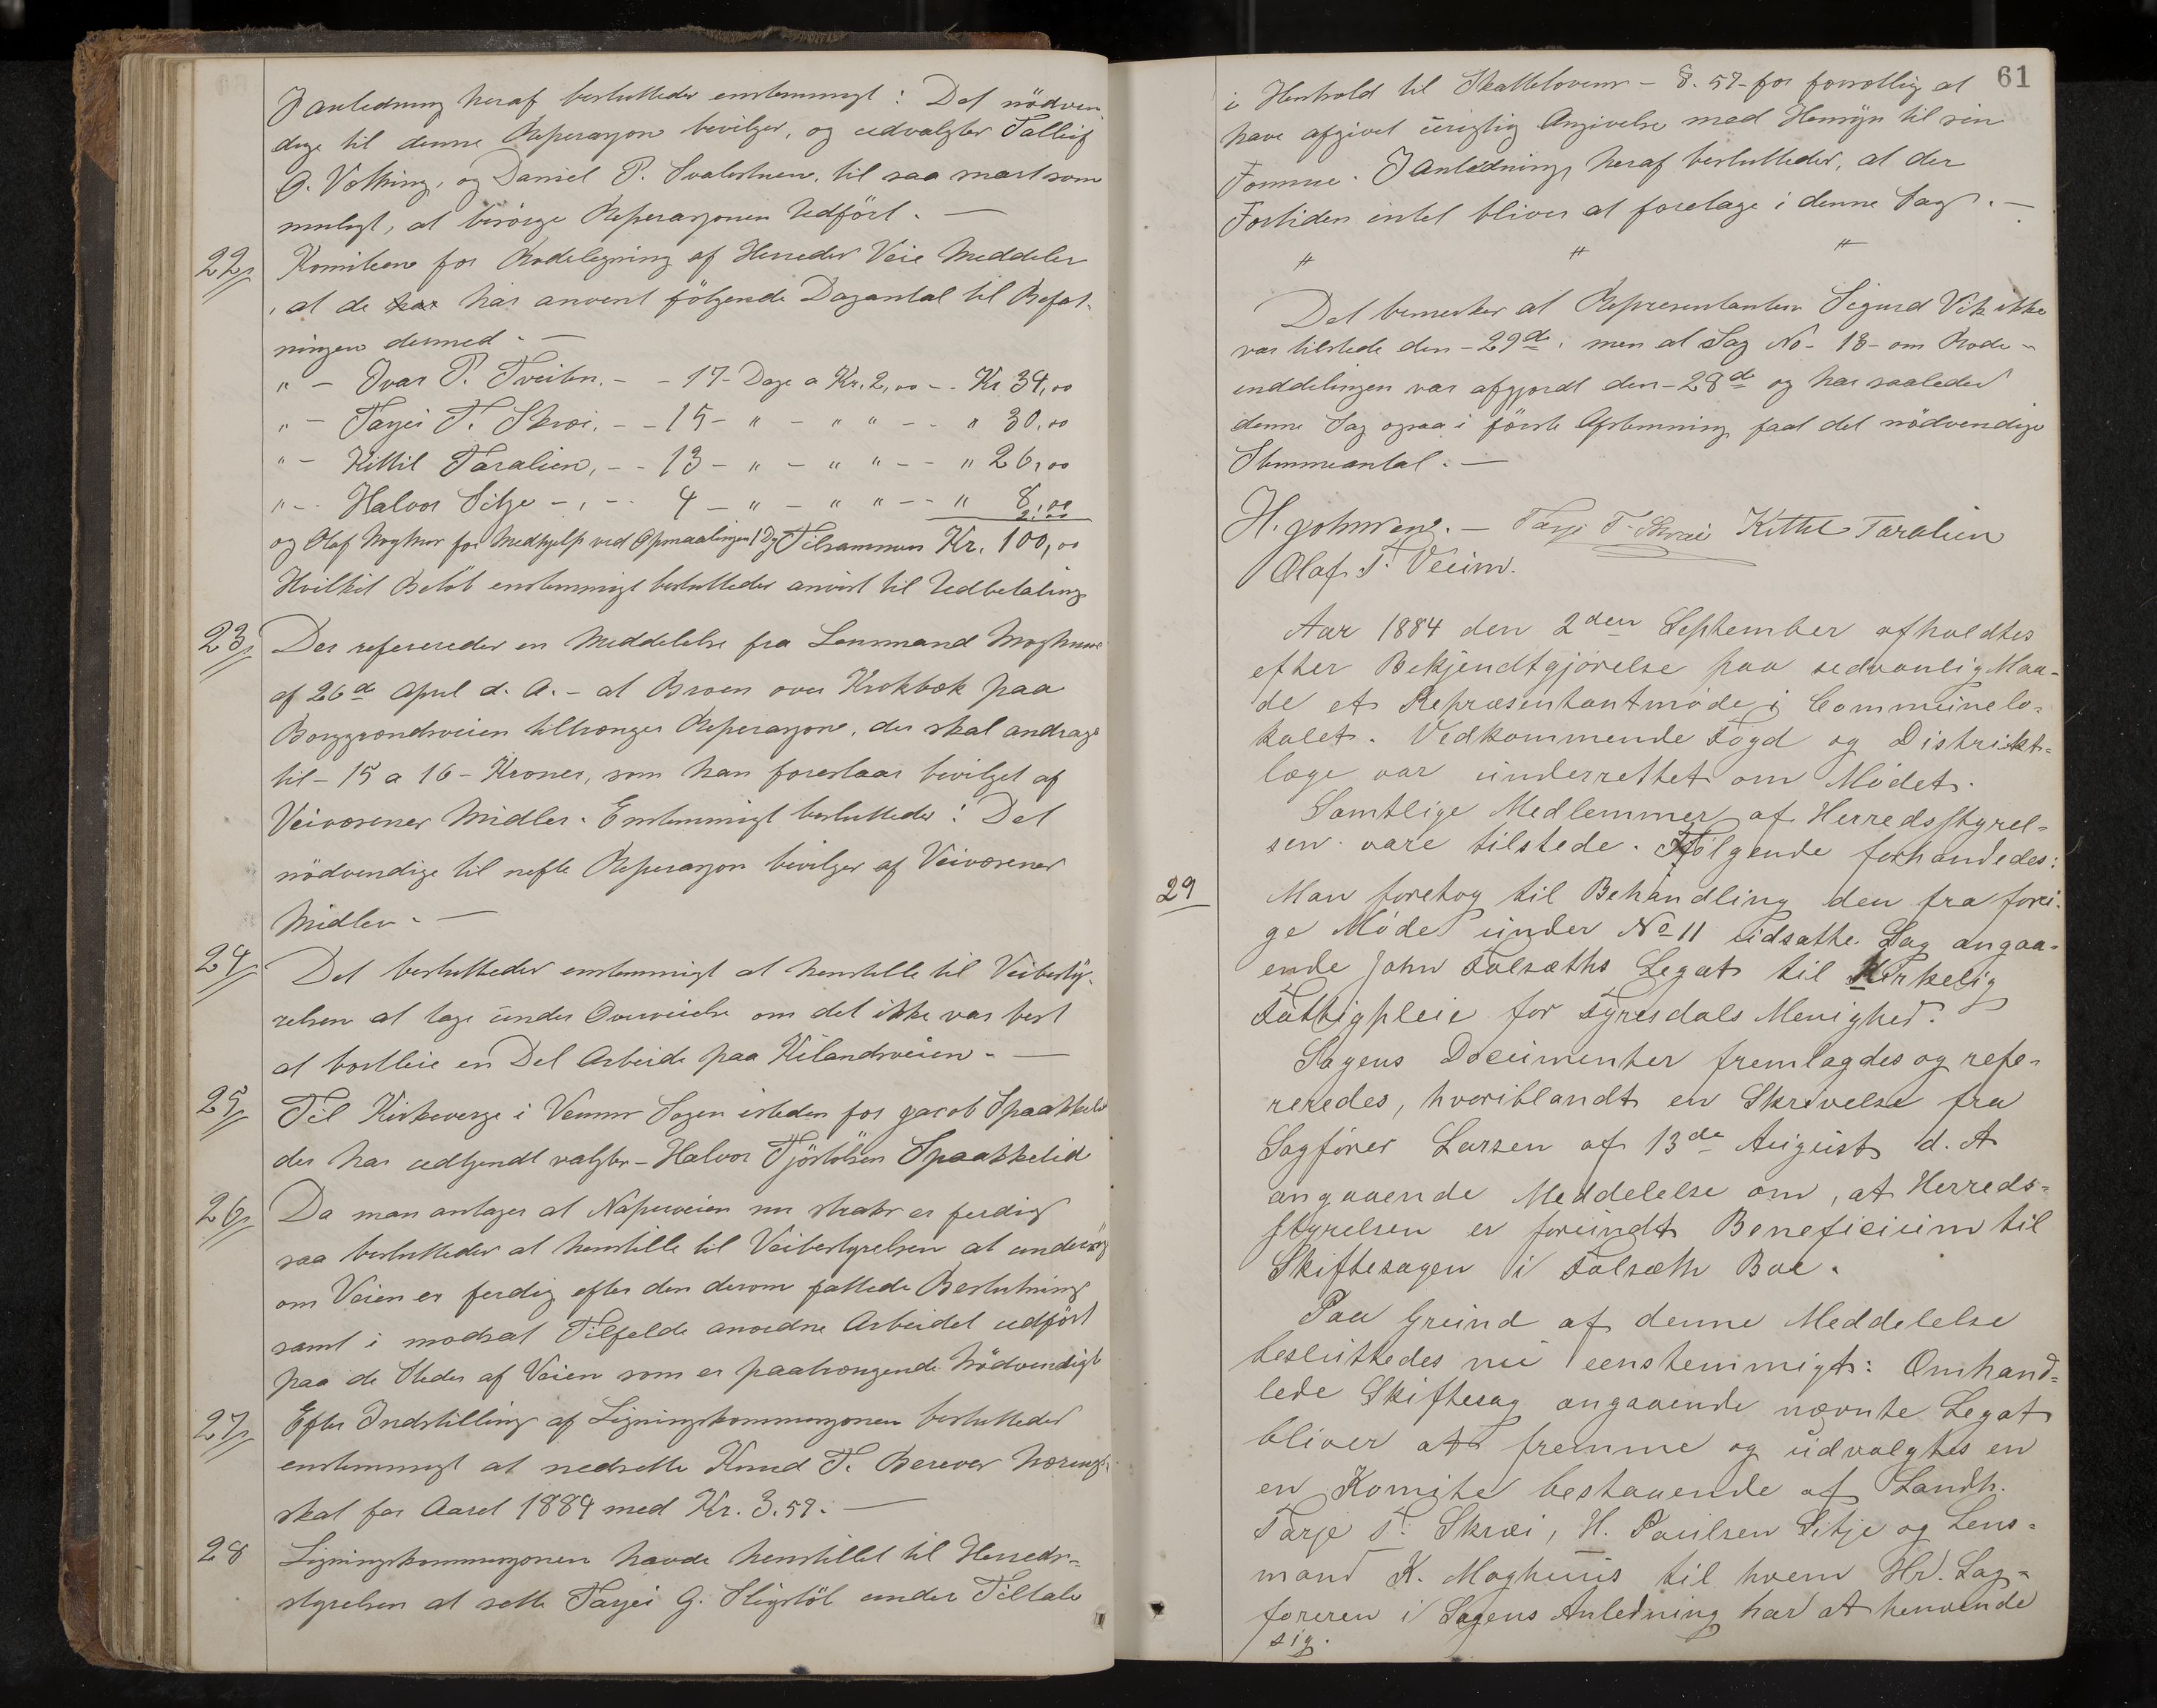 I anledning heraf besluttedes enstemmigt: Det nödven
dige til denne Reperasjon bevilges, og udvalgtes Talleif
G. Votthing, og Daniel P. Svalestuen, til saa snart som
muligt, at besörge Reperasjonen Udfört. —
22/ Komiteen for Rodelegning af Herredes Veie Meddeler
, at de har anvent följende Dagantal til Befat-
ningen dermed. —
" – Ivar P. Tveiten. – – 17 – Dage a Kr. 2,00 – . Kr 34,00
" – Tarjei T. Skræi. – – 15 – " – " " – – " 30,00
" – Kittil Taralien, – – 13 – " – " " – – " 26,00
" – Halvor Sitje – , – . 4 – " – " " – – " 8,00
2,00
og Olaf Moghus for Medhjelp ved Opmaalingen 1 Dg Tilsammen Kr. 100,00
Hvilkit Belöb enstemmigt besluttedes anvist til Udbetaling
23/ Der refereredes en Meddelelse fra Lensmand Moghuus
af 26de April d. A. – at Broen over Krokbæk paa
Borggrændsveien tiltrænger Reperasjon, der skal andrage
til – 15 a 16 – Kroner, som han foreslaar bevilget af
Veivæsenes Midler. Enstemmigt besluttedes: Det
nödvendige til nefte Reperasjon bevilges af Veivæsenes
Midler. —
24/ Det besluttedes enstemmigt at henstille til Veibesty-
relsen at tage under Overveielse om det ikke var best
at bortleie en Del Arbeide paa Kilandsveien. —
25/ Til Kirkeverge i Veums Sogn isteden for Jacob Spaakkelid
der har udtjendt valgtes – Halvor Tjöstölsen Spaakkelid
26/ Da man antager at Napeveien nu straks er ferdig
saa besluttedes at henstille til Veibestyrelsen at undersög
om Veien er ferdig efter den derom fattede Beslutning
samt i modsat Tilfelde anordne Arbeidet udfört
paa de Steder af Veien som er paatrængende Nödvendigt
27/ Efter Indstilling af Ligningskommisjonen besluttedes
enstemmigt at nedsette Knud T. Berever Nærings-
skat for Aaret 1884 med Kr. 3.57. —
28 Ligningskommisjonen havde henstillet til Herreds-
styrelsen at sette Tarjei G. Sligstöl under Tiltale
61
i Henhold til Skatteloven – §. 57 – for forsætlig at
have afgivet urigtig Angivelse med Hensyn til sin
Formue. I Anledning heraf besluttedes, at der
Fortiden intet bliver at foretage i denne Sag. —
" " "
Det bemerkes at Representanten Sigurd Vik ikke
var tilstede den – 29de, men at Sag No – 18 – om Rode –
inddelingen var afgjordt den – 28de og har saaledes
denne Sag ogsaa i förste Afstemning faat det nödvendige
Stemmeantal. —
H. Johnsen. — Tarje T. Skræi Kittil Taralien
Olaf T. Veum.
Aar 1884 den 2den September afholdtes
efter Bekjendtgjörelse paa sedvanlig Maa-
de et Repræsentantmöde i Communelo-
kalet. Vedkommende Fogd og Distrikt-
læge var underrettet om Mödet.
Samtlige Medlemmer af Herredsstyrel-
sen vare tilstede. Fölgende forhandedes:
29 Man foretog til Behandling den fra fori-
ge Möde under No 11 udsatte Sag angaa-
ende John Folsæths Legat til Kirkelig
Fattigpleie for Fyresdals Menighed.
Sagens Documenter fremlagdes og refe-
reredes, hvoriblandt en Skrivelse fra
Sagförer Larsen af 13de August d. A
angaaende Meddelelse om, at Herreds-
styrelsen er forundt Beneficium til
Skiftesagen i Folsæth Boe.
Paa Grund af denne Meddelelse
besluttedes nu eenstemmigt: Omhand-
lede Skiftesag angaaende nævnte Legat
bliver at fremme og udvalgtes en
en Komite bestaaende af Landh.
Tarje T. Skræi, H. Paulsen Sitje og Lens-
mand K. Moghuus til hvem Hr. Sag-
föreren i Sagens Anledning har at henvende
sig.